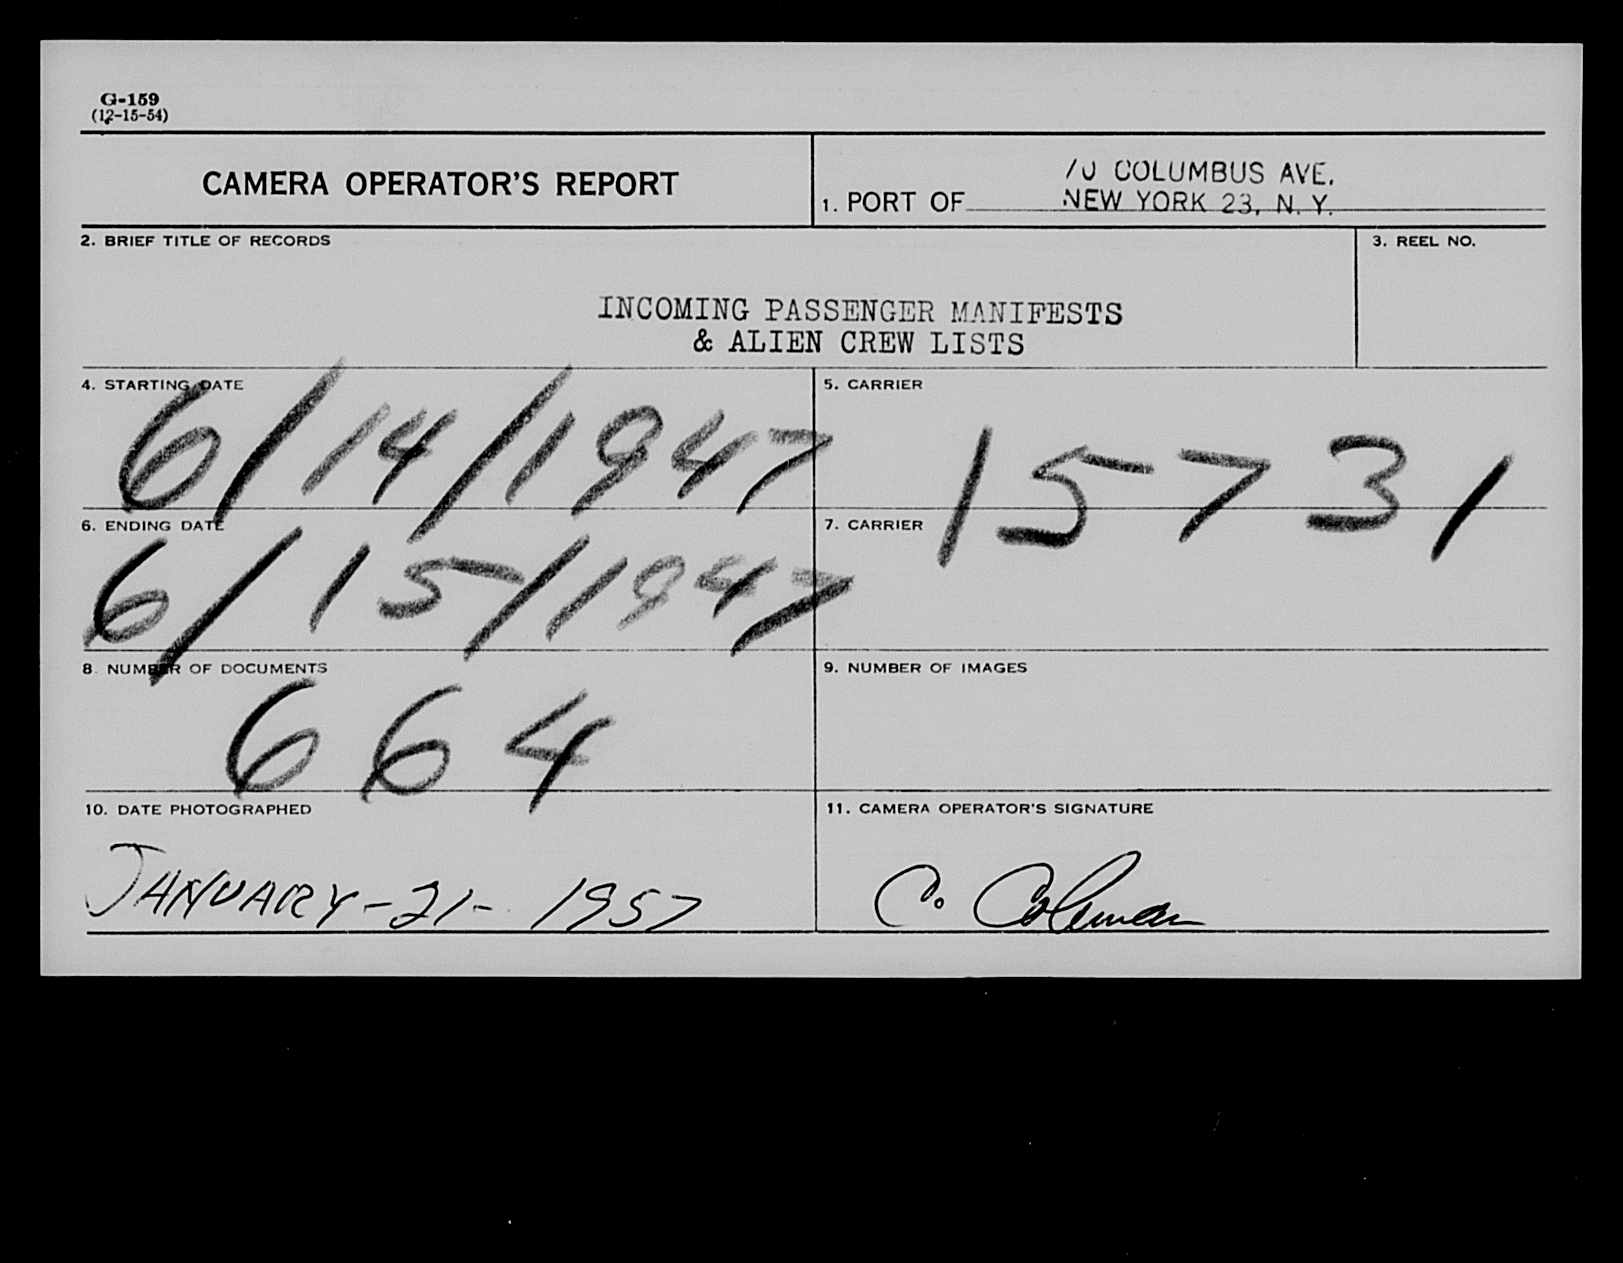 G-159
(12-15-54)
CAMERA OPERATOR'S REPORT
1. PORT OF 70 COLUMBUS AVE.
NEW YORK 23, N. Y.
2. BRIEF TITLE OF RECORDS
3. REEL NO.
INCOMING PASSENGER MANIFESTS
& ALIEN CREW LISTS
4. STARTING DATE
6/14/1947
5. CARRIER
15731
6. ENDING DATE
6/15/1947
7. CARRIER
8. NUMBER OF DOCUMENTS
664
9. NUMBER OF IMAGES
10. DATE PHOTOGRAPHED
JANUARY-21-1957
11. CAMERA OPERATOR'S SIGNATURE
C. Coleman